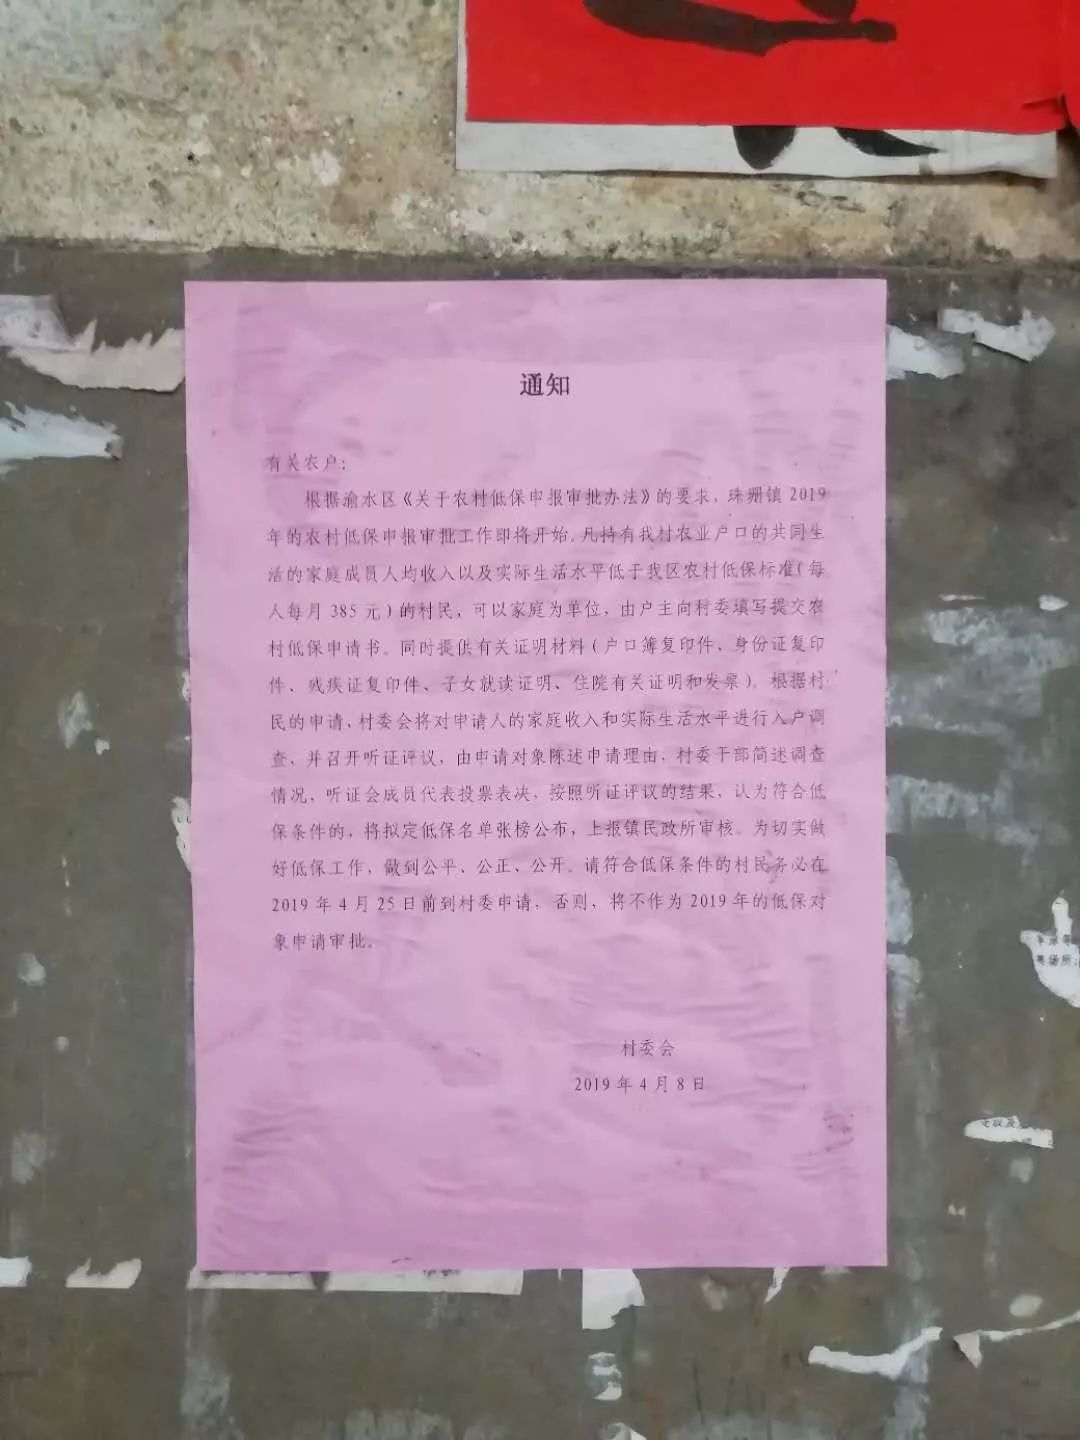 通知
有关农户：
根据渝水区《关于农村低保申报审批办法》的要求，珠珊镇 2019
年的农村低保申报审批工作即将开始。凡持有我村农业户口的共同生
活的家庭成员人均收入以及实际生活水平低于我区农村低保标准（每
人每月 385 元）的村民，可以家庭为单位，由户主向村委填写提交农
村低保申请书。同时提供有关证明材料（户口簿复印件、身份证复印
件、残疾证复印件、子女就读证明、住院有关证明和发票）。根据村
民的申请，村委会将对申请人的家庭收入和实际生活水平进行入户调
查，并召开听证评议，由申请对象陈述申请理由，村委干部简述调查
情况，听证会成员代表投票表决，按照听证评议的结果，认为符合低
保条件的，将拟定低保名单张榜公布，上报镇民政所审核。为切实做
好低保工作，做到公平、公正、公开。请符合低保条件的村民务必在
2019 年 4 月 25 日前到村委申请，否则，将不作为 2019 年的低保对
象申请审批。
村委会
2019 年 4 月 8 日